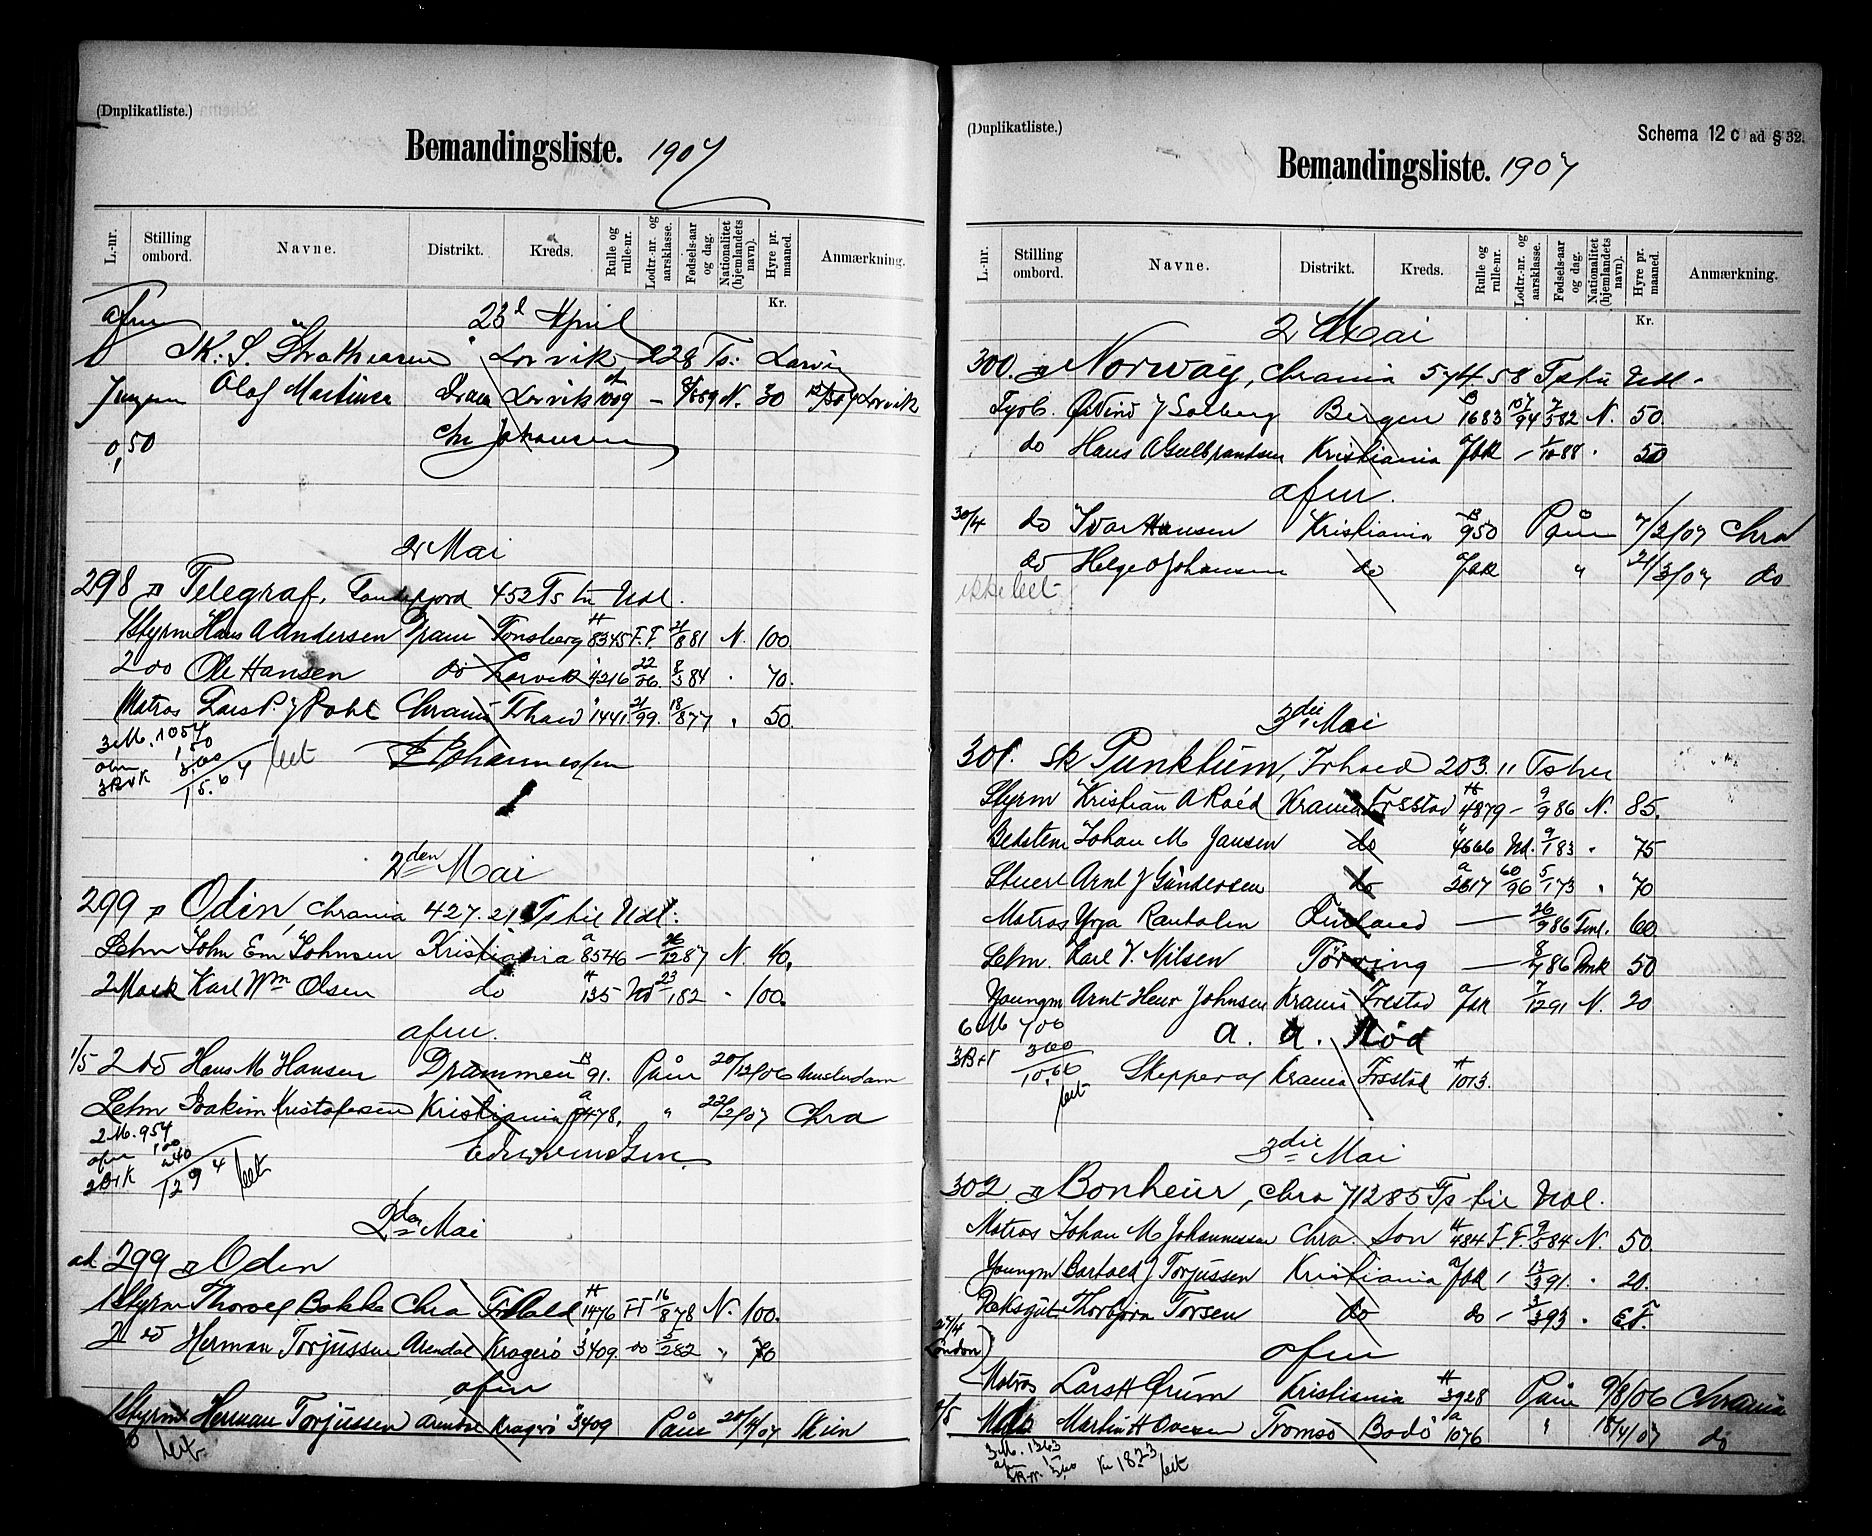 (Duplikatliste.)
Bemandingsliste. 1907
L.-nr. Stilling ombord. Navne. Distrikt. Kreds. Rulle og rulle-nr. Lodtr.-nr. og aarsklasse. Fødsels-aar og dag. Nationalitet (hjemlandets navn). Hyre pr. maaned. Anmærkning.
Kr.
afm 23d April
228 Ts: Larvik
Olaf Dram Larvik N. 30
0,50 Chr Johansen
2 Mai
298 Telegraf, 452 Ts til Udl.
Styrm Hans A Andersen Dram Tønsberg 8345 F.F. 21/8 81 N. 100.
2 do Ole Hansen do Larvik 4216 22/06. 8/3 84 70.
Matros Lars P. Chrania Frhald 1441 21/99. 18/8 77 50.
3 M. 10 54
afm 1,50
3 B & K 3,00
15.04 bet Johannessen
2den Mai
299 Odin, Chrania 427.21 Ts til Udl.
Letm John Em Johnsen Kristiania a 8546 – 26/12 87 N. 40,
2 Mask Karl Wm Olsen do H 135 Ud 23/1 82 100.
afm.
1/5 2 do Hans M Hansen Drammen B 91. Paam 20/12/06 Amsterdam
Letm Joakim Kristofersen Kristiania a 478. " 22/2/07 Chra
2 M. 954
afm 1,00
2 B & K 240
12 94 bet
2den Mai
ad 299 Odin
1 Styrm Thorolf Bakke Chra Frhald H 1476 FF 16/8 78 N. 100.
2 do Herman Torjussen Arendal Kragerø 3409. do 5/2 82 " 70
afm
1 Styrm Herman Torjussen Arendal Kragerø 3409 Paam 20/4/07 Skien
bet.
(Duplikatliste.)
Schema 12 c ad § 32.
Bemandingsliste. 1907
L.-nr. Stilling ombord. Navne. Distrikt. Kreds. Rulle og rulle-nr. Lodtr.-nr. og aarsklasse. Fødsels-aar og dag. Nationalitet (hjemlandets navn). Hyre pr. maaned. Anmærkning.
Kr.
2 Mai
300. Norway, Chrania 574.58 Ts til Udl.
Fyrb. Øivind J Solberg Bergen B 1683 107/94 7/3 82 N. 50.
do Hans A Gulbrandsen Kristiania Jbk – 1/10 88 50
afm.
30/4 do Ivar Hansen Kristiania B 950 Paam 7/2/07 Chra
do Helge O Johansen do Jbk " 21/3/07 do
ikke bet
3die Mai
301. Sk Punktum, Frhald 203.11 Ts
Styrm Kristian A Rød Krania Frsstad H 4879 – 9/9 86 N. 85.
Bedstem Johan M Jansen do " 4666 Ud. 9/1 83 75
Stuert Arnt J Gundersen do a 2617 60/96 5/1 73 70
Matros Yrja Rautalin Finland — 26/9 86 Finl. 60
Letm. Karl V. Nilsen Tørring — 8/7 86 Dmk 50
Youngm Arnt Henr Johnsen Krania Frestad Jbk 7/12 91 N. 20
6 M 7 00
3 B & K 3 00
10,00
bet
A. A. Rød
Skipper af Krania Frsstad H 1013.
3die Mai
302 Bonheur, Chra 71285 Ts til Udl.
Matros Johan M Johannessen Chra. Son H 484 F.F. 9/5 84 N. 50.
Youngm Bartold J Torjussen Kristiania Jbk 13/3 91. 20.
Dæksgut Thorbjørn Torsen do do – 3/3 93 E.F.
afm
27/4 London
Matros Lars H Ørum Kristiania H 3928 Paam 9/8/06 Chrania
Martin H Ovesen Tromsø Bodø a 1076 " 18/4/07 do
3 M. 1263
afm
Kr 18 23 bet